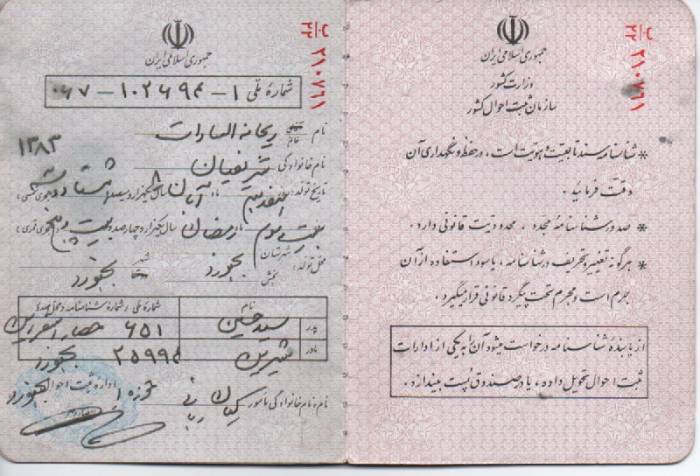 جمهوری اسلامی ایران
وزارت کشور
سازمان ثبت احوال کشور
* شناسنامه سند تابعیت و هویت است، در حفظ و نگهداری آن
دقت فرمائید.
* صدور شناسنامه مجدد، محدودیت قانونی دارد.
* هرگونه تغییر و تحریف در شناسنامه، یا سوء استفاده از آن
جرم است و مجرم تحت پیگرد قانونی قرار میگیرد.
از یابنده شناسنامه درخواست میشود آن را به یکی از ادارات
ثبت احوال تحویل داده، یا در صندوق پست بیندازد.
جمهوری اسلامی ایران
شماره ملی
نام ریحانه السادات
نام خانوادگی شریفیان
۱۳۸۳
تاریخ تولد: هفدهم ماه آبان سال یکهزار و سیصد و هشتاد و سه (هجری شمسی)
بیست و سوم ماه رمضان سال یکهزار و چهارصد و بیست و پنج (هجری قمری)
محل تولد: شهرستان بجنورد بخش شهر بجنورد
نام شماره ملی / شماره شناسنامه و محل صدور
پدر سیدحسین ۶۵۱
مادر شیرین بجنورد
نام و نام خانوادگی مامور
اداره ثبت احوال بجنورد